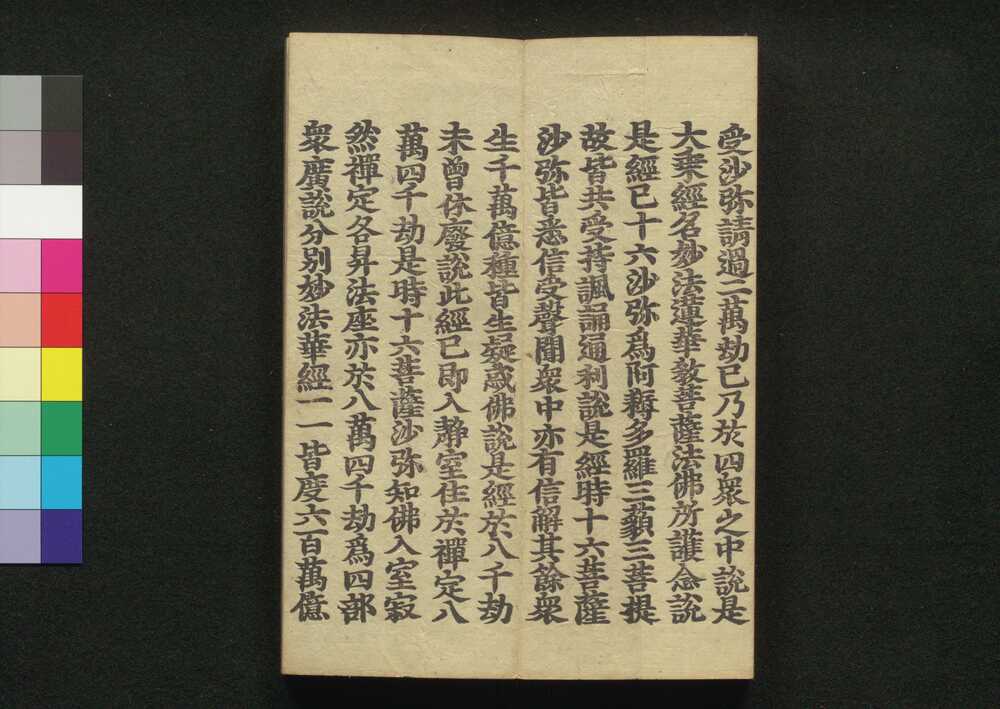 受沙弥請過二萬劫已乃於四衆之中說是
大乗經名妙法蓮華教菩薩法佛所護念說
是經已十六沙弥爲阿耨多羅三藐三菩提
故皆共受持諷誦通利說是經時十六菩薩
沙弥皆悉信受聲聞衆中亦有信解其餘衆
生千萬億種皆生疑惑佛說是經於八千劫
未曾休廢說此經已即入静室住於禪定八
萬四千劫是時十六菩薩沙弥知佛入室寂
然禪定各昇法座亦於八萬四千劫爲四部
衆廣說分別妙法華經一一皆度六百萬億